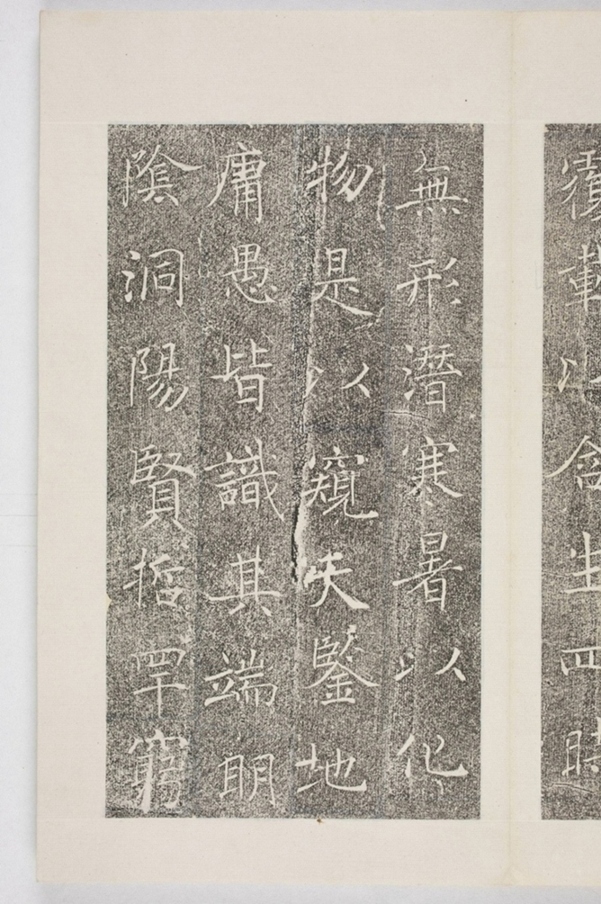 覆載以含生四時
無形潛寒暑以化
物是以窺天鑒地
庸愚皆識其端明
陰洞陽賢哲罕窮